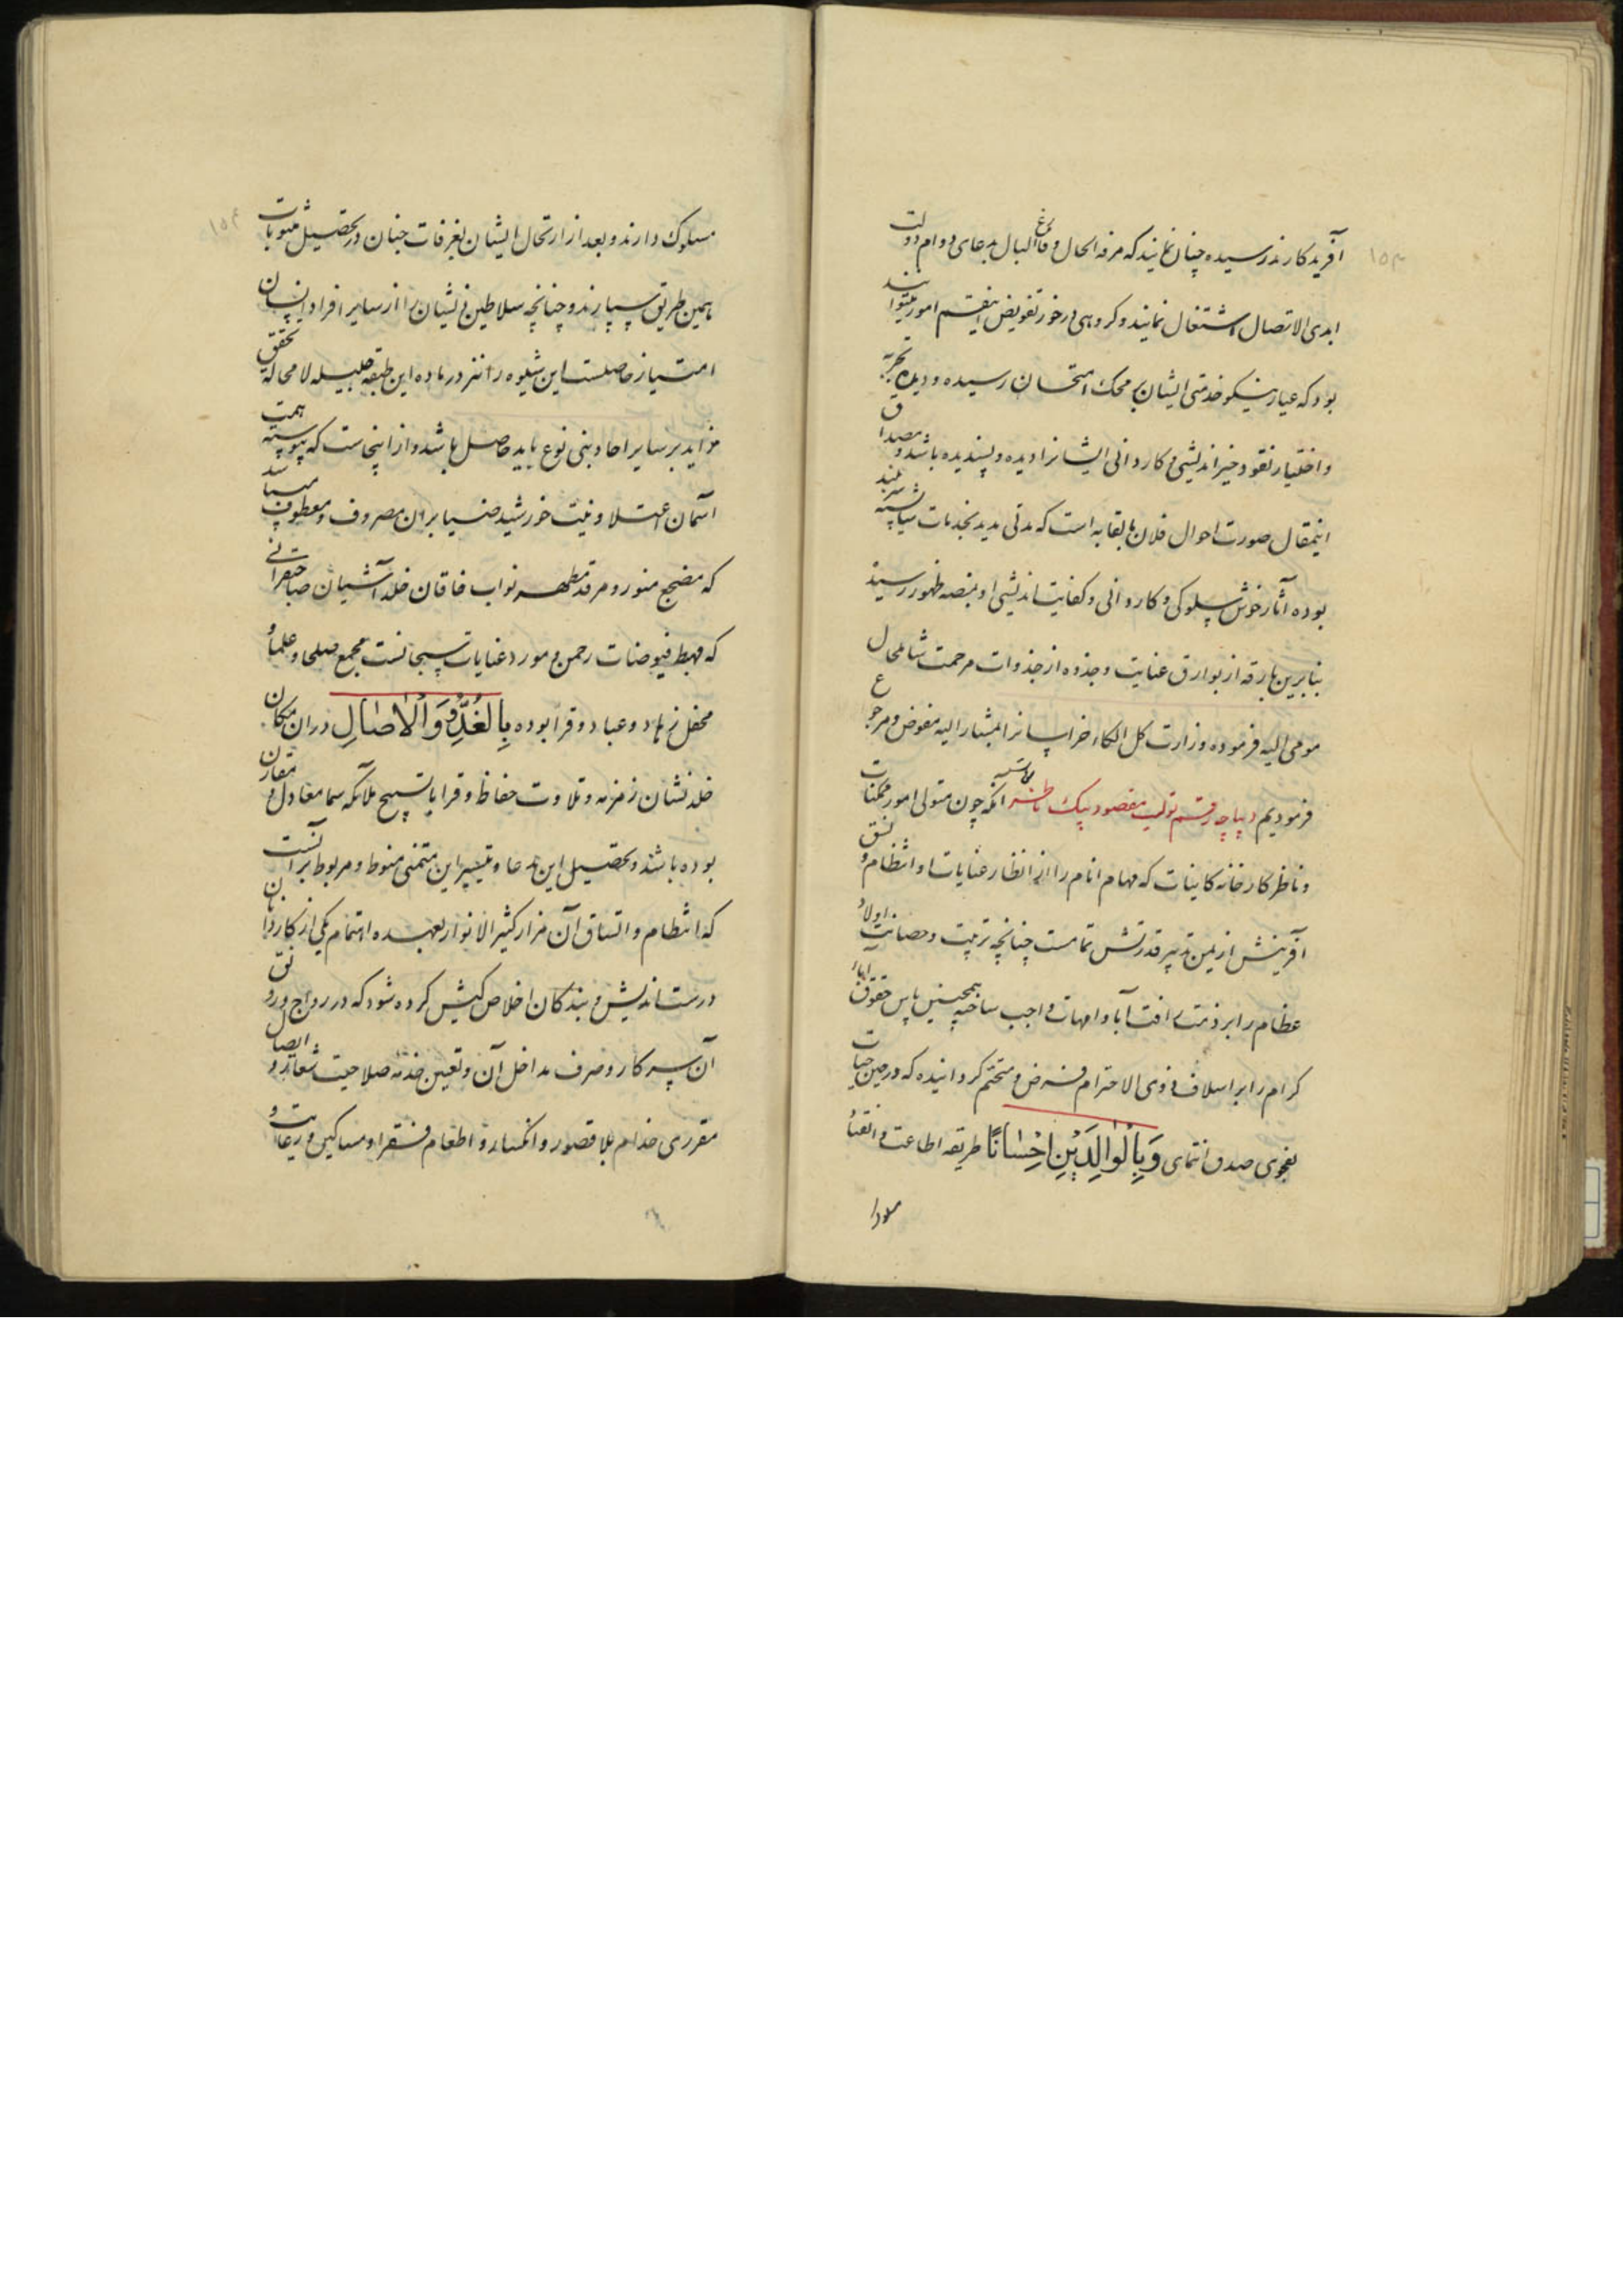 ۱۵۳
آفرید کار نذر سیده چنان نمایند که مرفه الحال و فارغ البال بدعای دوام دولت
ابدی الاتصال اشتغال نمایند و کروهی در خور تفویض اینقسم امور میتوانند
بود که عیار نیکو خدمتی ایشان بمحک امتحان رسیده و دیده تجربه
و اختیار نقود خیر اندیشی و کاردانی ایشانرا دیده و پسندیده باشد و مصداق
اینمقال صورت احوال فلان بقایه است که مدتی مدید بخدمات شایسته
بوده آثار خوش سلوکی و کاردانی و کفایت اندیشی او بمنصه ظهور رسید
بنابرین بارقه از بوارق عنایت و جذوه از جذوات مرحمت شامل حال
مومی الیه فرموده وزارت کل الکاء خراسانرا بمشار الیه مفوض و مرجوع
فرمودیم دیباچه رقم تولیت مقصود بیک ناظر انکه چون متولی امور ممکنات
و ناظر کارخانه کاینات که مهام انام را از انظار عنایات او انتظام و نسق
آفرینش از یمن تدبیر قدرتش تمامست چنانچه تربیت و حضانت اولاد
عظام را بر ذمت رافت آبا و امهات واجب ساخته همچنین پاس حقوق آباء
کرام را بر اسلاف ذوی الاحترام فرض و متحتم کردانیده که در حین حیات
بفحوی صدق انتمای وَبِالْوَالِدَيْنِ اِحْسَانًا طریقه اطاعت و انقیاد
مسلوک دارند و بعد از ارتحال ایشان بغرفات جنان در تحصیل مثوبات
همین طریق سپارند و چنانچه سلاطین ذیشان را از سایر افراد انسان
امتیاز حاصلست این شیوه را نیز در ماده این طبقه جلیله لا محاله تحقق
زاید بر سایر احاد بنی نوع باید حاصل باشد و از اینجاست که پیوسته همت
آسمان اعتلا و نیت خورشید ضیا بران مصروف و معطوف میباشد
که مضجع منور و مرقد مطهر نواب خاقان خلد آشیان صاحبقرانی
که مهبط فیوضات رحمن و مورد عنایات سبحانست مجمع صلحا و علما و
محفل زهاد و عباد و قرا بوده بِالْغُدُوِّ وَالْاٰصَالِ دران مکان
خلد نشان زمزمه و تلاوت حفاظ و قرا با تسبیح ملائکه سما معادل و مقارن
بوده باشد و تحصیل این مدعا و تیسیر این متمنی منوط و مربوط برآنست
که انتظام و اتساق آن مزار کثیر الانوار بعهده اهتمام یکی از کاردانان
درست اندیش و بندکان اخلاص کیش کرده شود که در رواج و رونق
آن سرکار و صرف مداخل آن و تعیین خدمه صلاحیت شعار و ایصال
مقرری خدام بلا قصور و انکسار و اطعام فقرا و مساکین و رعایت